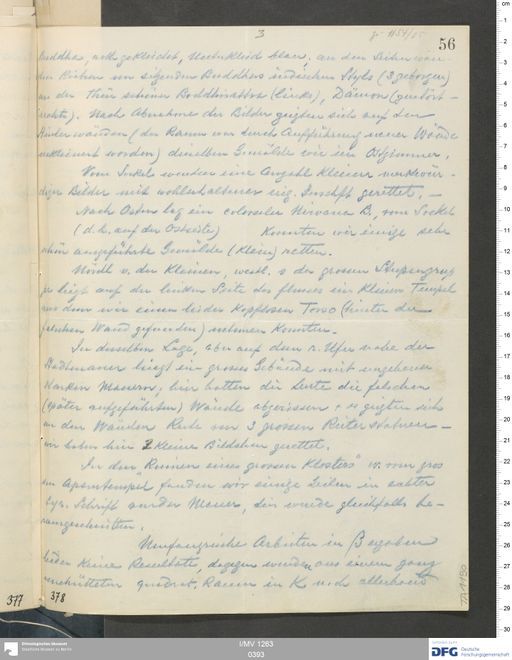 3
56
Buddha, nett gekleidet, Unterkleid blau, an den Seiten
den Reihen von sitzenden Buddhas indischen Styls (3 geborgen)
an der Thür schöne Boddhisattva (links), Dämon (zerstört –
rechts). Nach Abnahme der Bilder zeigten sich auf den
Hinterwänden (der Raum war durch Aufführung neuer Wände
verkleinert worden) dieselben Gemälde wie im Ostzimmer.
Vom Sockel wurden eine Anzahl kleiner merkwür-
diger Bilder mit wohlerhaltener uig. Inschrift gerettet. –
Nach Osten lag ein colossaler Nirvana B., vom Sockel
(d. h. auf der Ostseite) konnten wir einige sehr
schön ausgeführte Gemälde (klein) retten.
Nördl. v. der kleinen, westl. v. der grossen Stupengrup
pe liegt auf der linken Seite des Flusses ein kleiner Tempel
aus dem wir einen leider kopflosen Torso (hinter der
falschen Wand gefunden) nehmen konnten.
In derselben Lage, aber auf dem r. Ufer nahe der
Stadtmauer liegt ein grosses Gebäude mit ungeheuer
starken Mauern; hier hatten die Leute die falschen
(später aufgeführten) Wände abgerissen & es zeigten sich
an den Wänden Reste von 3 grossen Reiterstatuen –
wir haben hier 2 kleine Bildchen gerettet.
In den Ruinen eines grossen Klosters v. vom gros
sen fanden wir einige Zeilen in
Schrift an der Mauer, die wurde gleichfalls he-
rausgeschnitten.
Umfangreiche Arbeiten in β ergaben
leider keine Resultate, dagegen wurden aus einem ganz
verschütteten quadrat. Raum in K noch allerhand
377
378
I/MV 1263
0393
Ethnologisches Museum
Staatliche Museen zu Berlin
DFG
Deutsche
Forschungsgemeinschaft